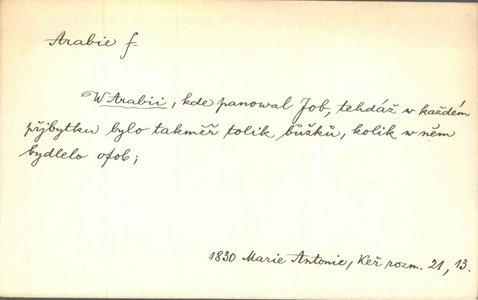 Arabie f.
W Arabii, kde panowal Job, tehdáž w každém
přjbytku bylo takměř tolik bůžků, kolik w něm
bydlelo osob;
1830 Marie Antonie, Keř rozm. 21, 13.